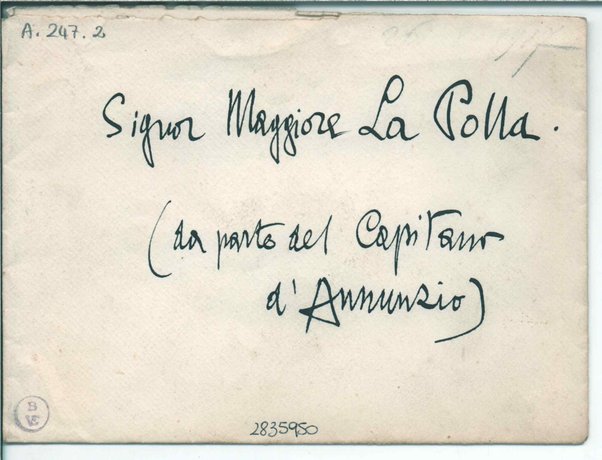 A. 247. 2
Signor Maggiore La Polla.
(da parte del Capitano
d'Annunzio)
BVE
2835950